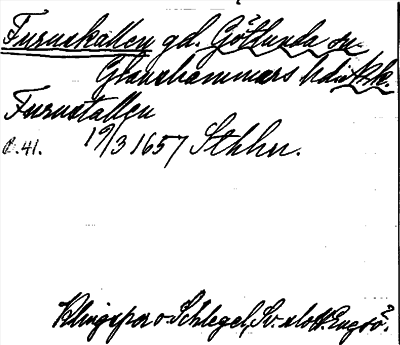 Furuskallen gd. Götlunda sn.
Glanshammars hd. Nrk.
Furustallen
R. 41. 19/3 1657 Sthlm.
Klingspor o. Schlegel, Sv. slott. Engsö.